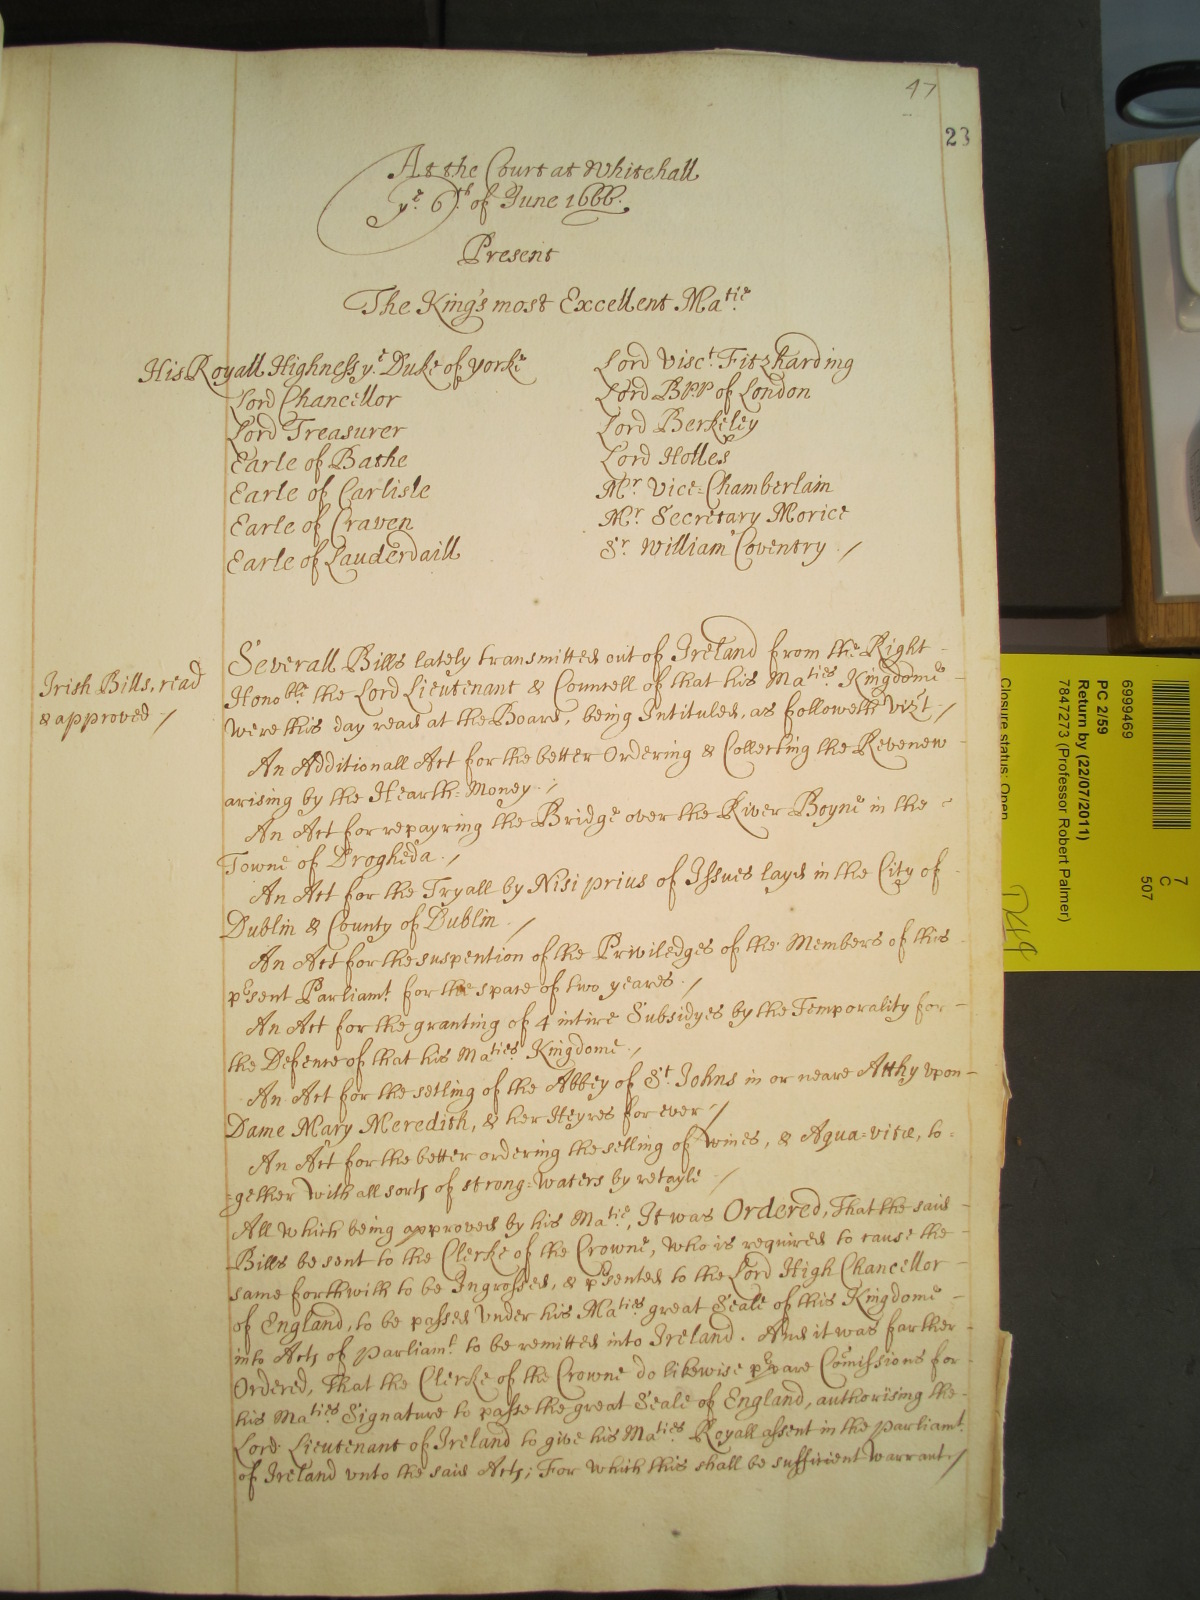 47
23
At the Court at Whitehall
yᵉ 6ᵗʰ of June 1666.
Present
The King's most Excellent Maᵗⁱᵉ
His Royall Highness yᵉ Duke of yorke
Lord Chancellor
Lord Treasurer
Earle of Bathe
Earle of Carlisle
Earle of Craven
Earle of Lauderdaill
Lord Viscᵗ Fitzharding
Lord Bpp of London
Lord Berkeley
Lord Holles
Mʳ Vice=Chamberlain
Mʳ Secretary Morice
Sʳ William Coventry /
Irish Bills, read
& approved /
Severall Bills lately transmitted out of Ireland from the Right
Honoᵇˡᵉ the Lord Lieutenant & Councell of that his Maᵗⁱᵉˢ Kingdome
were this day read at the Board, being Intituled, as followeth Vizᵗ /
An Additionall Act for the better Ordering & Collecting the Revenew
arising by the Hearth=Money. /
An Act for repayring the Bridge over the River Boyne in the
Towne of Drogheda. /
An Act for the Tryall by Nisi prius of Issues layd in the City of
Dublin & County of Dublin. /
An Act for the suspention of the Priviledges of the Members of this
pʳsent Parliamᵗ for the space of two yeares. /
An Act for the granting of 4 intire Subsidyes by the Temporality for
the Defence of that his Maᵗⁱᵉˢ Kingdome. /
An Act for the setling of the Abbey of Sᵗ Johns in or neare Atthy vpon
Dame Mary Meredith, & her Heyres for ever /
An Act for the better ordering the selling of wines, & Aqua=vitæ, to=
=gether with all sorts of strong=waters by retayle. /
All which being approved by his Maᵗⁱᵉ, It was Ordered, That the said
Bills be sent to the Clerke of the Crowne, who is required to cause the
same forthwith to be Ingrossed, & pʳsented to the Lord High Chancellor
of England, to be passed Vnder his Maᵗⁱᵉˢ great Seale of this Kingdome
into Acts of Parliamᵗ to be remitted into Ireland. And it was farther
Ordered, That the Clerke of the Crowne do likewise pʳpare Comissions for
his Maᵗⁱᵉˢ Signature to passe the great Seale of England, authorising the
Lord Lieutenant of Ireland to give his Maᵗⁱᵉˢ Royall assent in the Parliamᵗ
of Ireland vnto the said Acts; For which this shall be sufficient Warrant. /
6999469
PC 2/59
Return by (22/07/2011)
7847273 (Professor Robert Palmer)
Closure status: Open
7
C
507